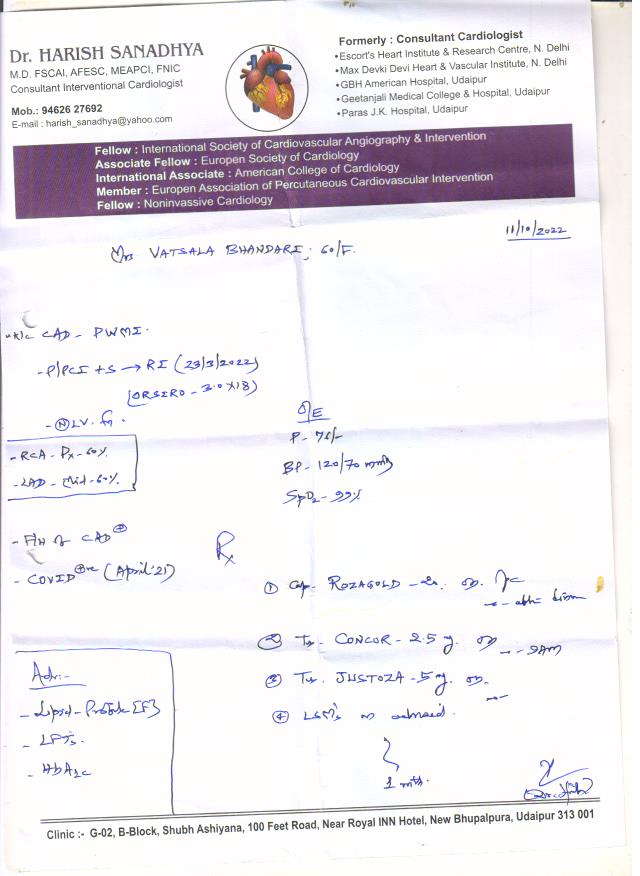 Dr. HARISH SANADHYA
M.D. FSCAI, AFESC, MEAPCI, FNIC
Consultant Interventional Cardiologist
Mob.: 94626 27692
E-mail : harish_sanadhya@yahoo.com
Formerly : Consultant Cardiologist
• Escort's Heart Institute & Research Centre, N. Delhi
• Max Devki Devi Heart & Vascular Institute, N. Delhi
• GBH American Hospital, Udaipur
• Geetanjali Medical College & Hospital, Udaipur
• Paras J.K. Hospital, Udaipur
Fellow : International Society of Cardiovascular Angiography & Intervention
Associate Fellow : Europen Society of Cardiology
International Associate : American College of Cardiology
Member : Europen Association of Percutaneous Cardiovascular Intervention
Fellow : Noninvassive Cardiology
11/10/2022
Mrs VATSALA BHANDARI; 60/F.
K/c CAD - PWMI.
- P/PCI + S → RI (23/3/2022)
(ORSIRO - 3.0 X 18)
- (N) LV. fn.
- RCA - Px - 60%
- LAD - Mid - 60%
O/E
P - 76/-
BP - 120/70 mmHg
SpO2 - 99%
- F/H of CAD +
- COVID +ve (April '21)
Rx
① Cap. ROZAGOLD -
② Tab. CONCOR - 2.5 mg. OD - 9AM
③ Tab. JUSTOZA - 5 mg. OD.
④ LSM's as advised.
1 mth.
Adv:-
- Lipid - Profile [F]
- LFTs.
- HbA1c
Clinic :- G-02, B-Block, Shubh Ashiyana, 100 Feet Road, Near Royal INN Hotel, New Bhupalpura, Udaipur 313 001